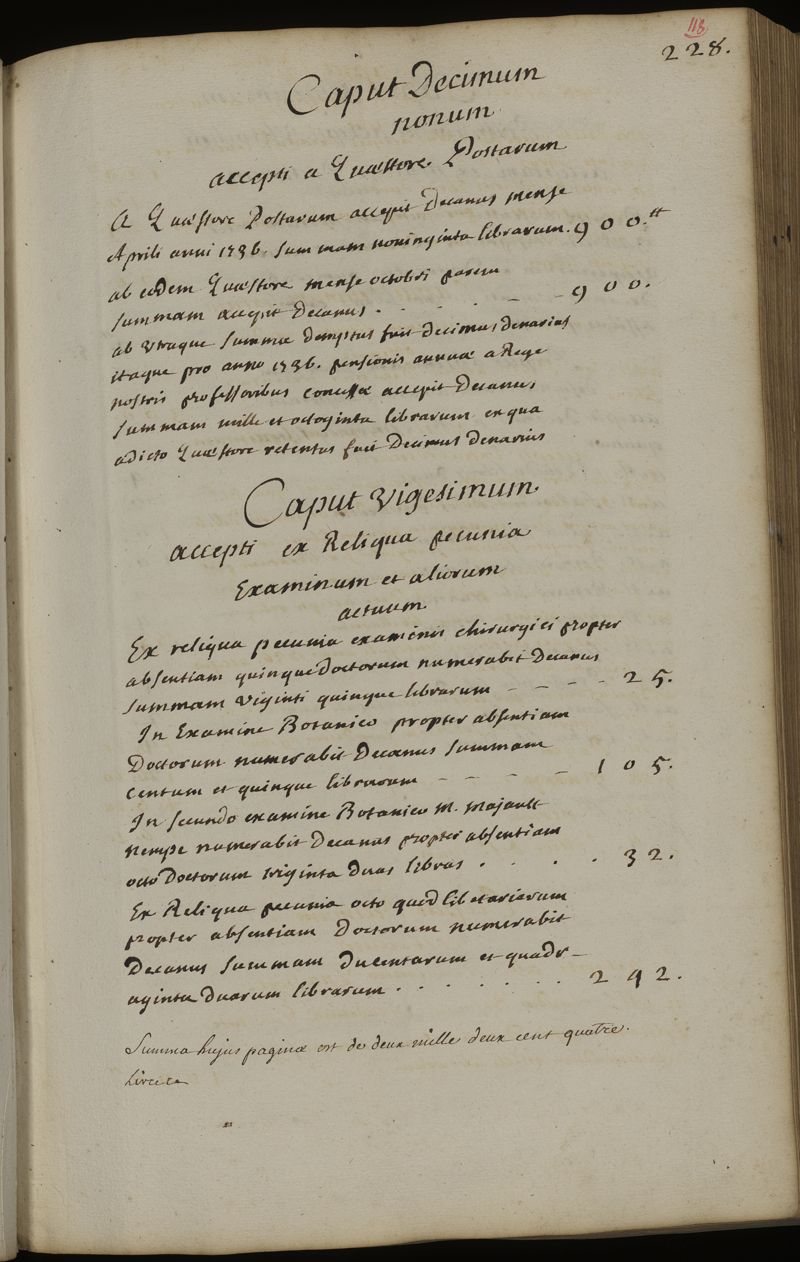 118.
228.
Caput Decimum
nonum
accepti a Quæstore Postarum
A Quæstore Postarum accepit Decanus mense
Aprili anni 1736. summam noninginta librarum. 900.tt
ab eodem Quæstore mense octobri parem
summam accepit Decanus . . . . - - 900.
ab utraque summa demptus fuit decimus denarius
itaque pro anno 1736. pensionis annuæ a Rege
nostris professoribus concessæ accepit Decanus
summam mille et octoginta librarum ex qua
a dicto Quæstore retentus fuit Decimus denarius
Caput vigesimum
accepti ex Reliqua pecunia
Examinum et aliorum
actuum
Ex reliqua pecunia examinis chirurgici propter
absentiam quinque Doctorum numerabit Decanus
summam viginti quinque librarum - - - - 25.
In Examine Botanico propter absentiam
Doctorum numerabit Decanus summam
centum et quinque librarum - - - - - 105.
In secundo examine Botanico M. Majault
nempe numerabit Decanus propter absentiam
octo Doctorum triginta duas libras . . . . . 32.
Ex Reliqua pecunia octo quodlibetariarum
propter absentiam Doctorum numerabit
Decanus summam ducentarum et quadr-
aginta duarum librarum . . . . . . . 242.
Summa hujus paginæ est de deux mille deux cent quatre.
Livres